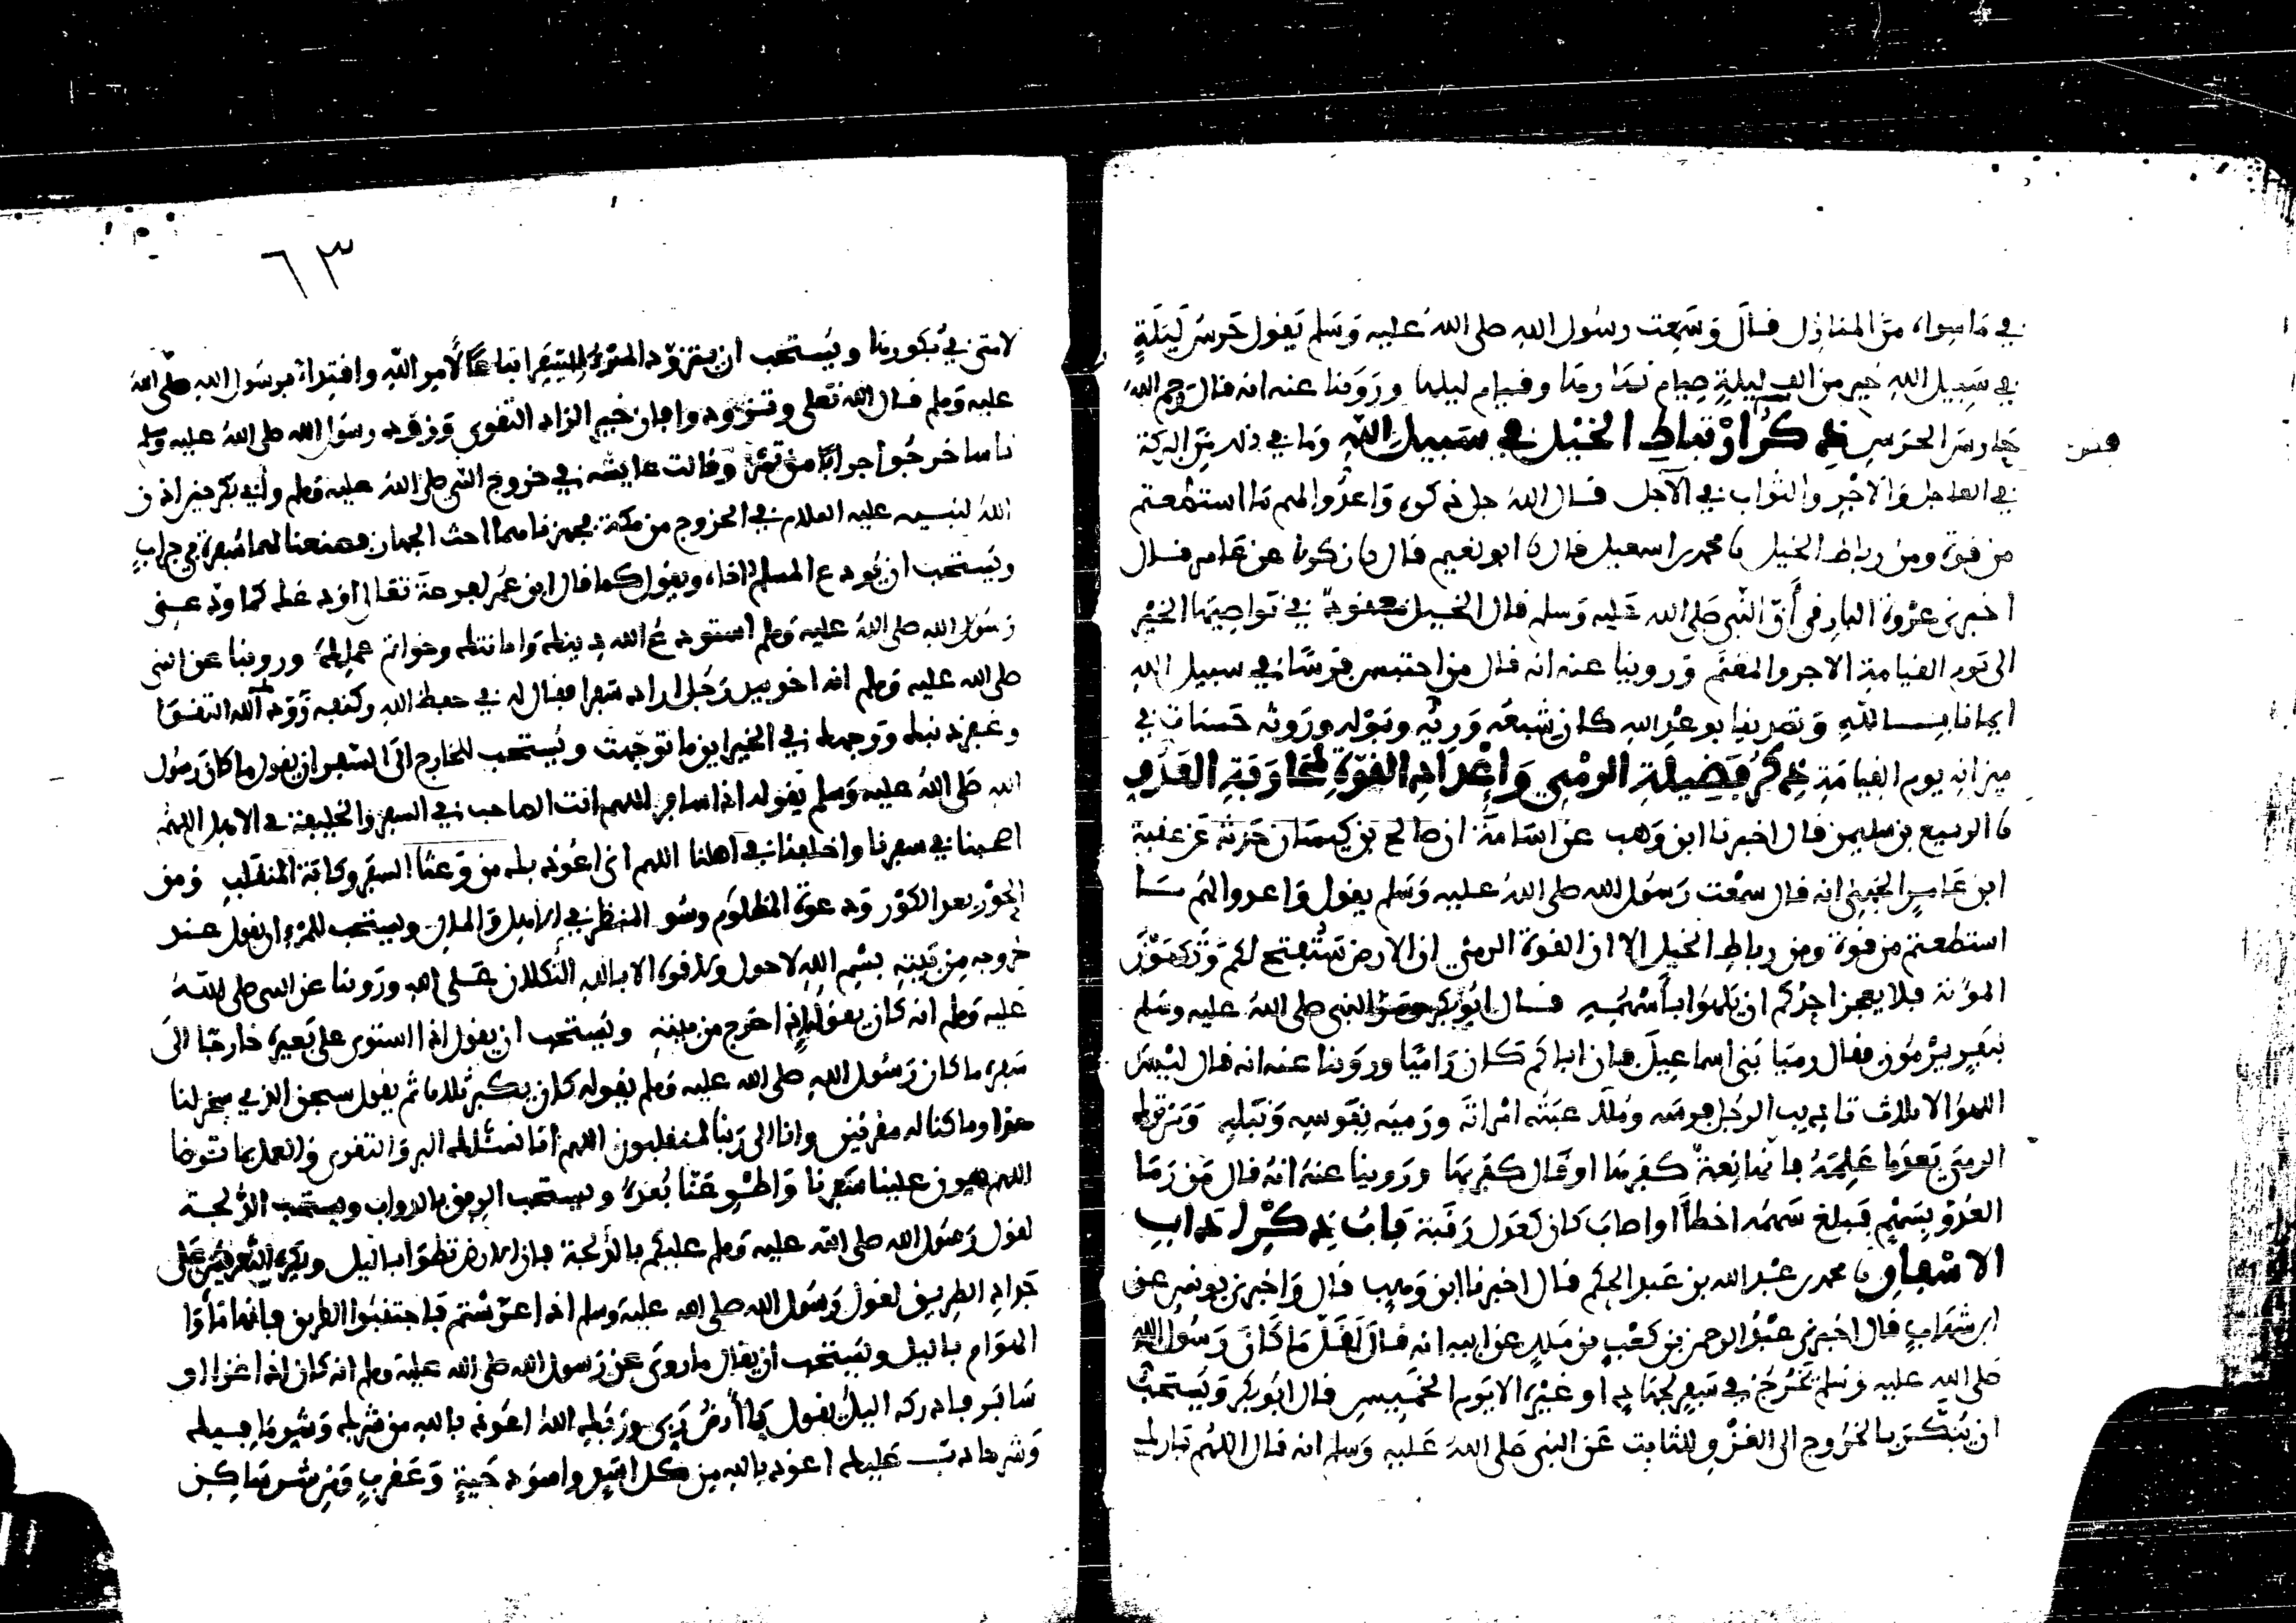 في ما سواه من المنازل قال وسمعت رسول الله صلى الله عليه وسلم يقول حرس ليلة
في سبيل الله خير من الف ليلة صيام نهارها وقيام ليلها وروينا عنه انه قال رحم الله
حارس الحرس ذكر ارتباط الخيل في سبيل الله وما في ذلك من البركة
في العاجل والاجر والثواب في الآجل قال الله جل ذكره واعدوا لهم ما استطعتم
من قوة ومن رباط الخيل نا محمد بن اسمعيل قال نا ابو نعيم قال نا زكريا عن عامر قال
اخبرني عروة البارقي أن النبي صلى الله عليه وسلم قال الخيل معقود في نواصيها الخير
الى يوم القيامة الاجر والمغنم وروينا عنه انه قال من احتبس فرسا في سبيل الله
ايمانا بالله وتصديقا بوعد الله كان شبعه وريه وبوله وروثه حسنات في
ميزانه يوم القيامة ذكر فضيلة الرمي وإعداد القوة لمحاربة العدو
نا الربيع بن سليمن قال اخبرنا ابن وهب عن اسامة ان صالح بن كيسان حدثه عن عقبة
ابن عامر الجهني انه قال سمعت رسول الله صلى الله عليه وسلم يقول واعدوا لهم ما
استطعتم من قوة ومن رباط الخيل الا ان القوة الرمي ان الارض ستفتح لكم وتكفون
المؤنة فلا يعجز احدكم ان يلهوا بأسهمه قال ابو بكر ومر النبي صلى الله عليه وسلم
بنفر يرمون فقال رميا بني اسماعيل فان اباكم كان راميا وروينا عنه انه قال ليس
اللهو الا ثلاث تاديب الرجل فرسه وملاعبته امراته ورميه بقوسه ونبله ومن ترك
الرمي بعد ما علمه فانها نعمة كفرها او قال كفر بها وروينا عنه انه قال من رما
العدو بسهم فبلغ سهمه اخطأ او اصاب كان كعدل رقبة باب ذكر اداب
الاسفار نا محمد بن عبد الله بن عبد الحكم قال اخبرنا ابن وهب قال واخبرني يونس عن
ابن شهاب قال اخبرني عبد الرحمن بن كعب بن ملك عن ابيه انه قال لقل ما كان رسول الله
صلى الله عليه وسلم يخرج في سفر لجهاد او غيره الا يوم الخميس قال ابو بكر ويستحب
ان يبكر بالخروج الى الغزو للثابت عن النبي صلى الله عليه وسلم انه قال اللهم بارك
٦٣
لامتي في بكورها ويستحب ان يتزود المرء للسفر اتباعا لأمر الله واقتداء برسول الله صلى الله
عليه وسلم قال الله تعلى وتزودوا فان خير الزاد التقوى وزود رسول الله صلى الله عليه وسلم
ناسا خرجوا جرابا من تمر وقالت عايشة في خروج النبي صلى الله عليه وسلم وأبي بكر حين اذن
الله لنبيه عليه السلام في الخروج من مكة فجهزناهما احث الجهاز فصنعنا لهما سفرة في جراب
ويستحب ان يودع المسلم اخاه ويقول كما قال ابن عمر لقزعة تعال اودعك كما ودعني
رسول الله صلى الله عليه وسلم استودع الله دينك وامانتك وخواتم عملك وروينا عن النبي
صلى الله عليه وسلم انه اخذ بيد رجل اراد سفرا فقال له في حفظ الله وكنفه زودك الله التقوى
وغفر ذنبك ووجهك في الخير اين ما توجهت ويستحب للخارج الى السفر ان يقول ما كان رسول
الله صلى الله عليه وسلم يقوله اذا سافر اللهم انت الصاحب في السفر والخليفة في الاهل اللهم
اصحبنا في سفرنا واخلفنا في اهلنا اللهم اني اعوذ بك من وعثا السفر وكابة المنقلب ومن
الحور بعد الكور ودعوة المظلوم وسو المنظر في الاهل والمال ويستحب للمرء ان يقول عند
خروجه من بيته بسم الله لا حول ولا قوة الا بالله التكلان على الله وروينا عن النبي صلى الله
عليه وسلم انه كان يقوله إذا خرج من بيته ويستحب ان يقول اذا استوى على بعيره خارجا الى
سفره ما كان رسول الله صلى الله عليه وسلم يقوله كان يكبر ثلاثا ثم يقول سبحن الذي سخر لنا
هذا وما كنا له مقرنين وانا الى ربنا لمنقلبون اللهم انا نسئلك البر والتقوى والعمل بما ترضا
اللهم هون علينا سفرنا واطو عنا بعده ويستحب الرفق بالدواب ويستحب الدلجة
لقول رسول الله صلى الله عليه وسلم عليكم بالدلجة فان الارض تطوا باليل ويكره التعريس على
جواد الطريق لقول رسول الله صلى الله عليه وسلم اذا عرستم فاجتنبوا الطريق فانها مأوا
الهوام باليل ويستحب ان يقال ما روي عن رسول الله صلى الله عليه وسلم انه كان اذا غزا او
سافر فادركه اليل يقول يا أرض ربي وربك الله اعوذ بالله من شرك وشر ما فيك
وشر ما دب عليك اعوذ بالله من كل اسد واسود حية وعقرب ومن شر ساكن